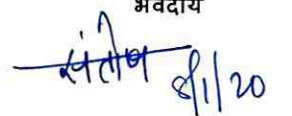 भवदीय
संतोष
8/1/20